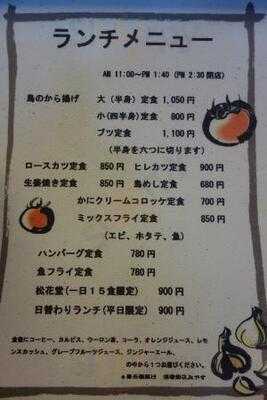 ランチメニュー
AM 11:00~PM 1:40 (PM 2:30閉店)
鳥のから揚げ 大(半身)定食 1,050円
小(四半身)定食 800円
ブツ定食 1,100円
(半身を六つに切ります)
ロースカツ定食 850円 ヒレカツ定食 900円
生姜焼き定食 850円 鳥めし定食 680円
かにクリームコロッケ定食 700円
ミックスフライ定食 850円
(エビ、ホタテ、魚)
ハンバーグ定食 780円
魚フライ定食 780円
松花堂(一日15食限定) 900円
日替わりランチ(平日限定) 900円
全食にコーヒー、カルピス、ウーロン茶、コーラ、オレンジジュース、レモ
ンスカッシュ、グレープフルーツジュース、ジンジャーエール、
の中から1つお選びください。